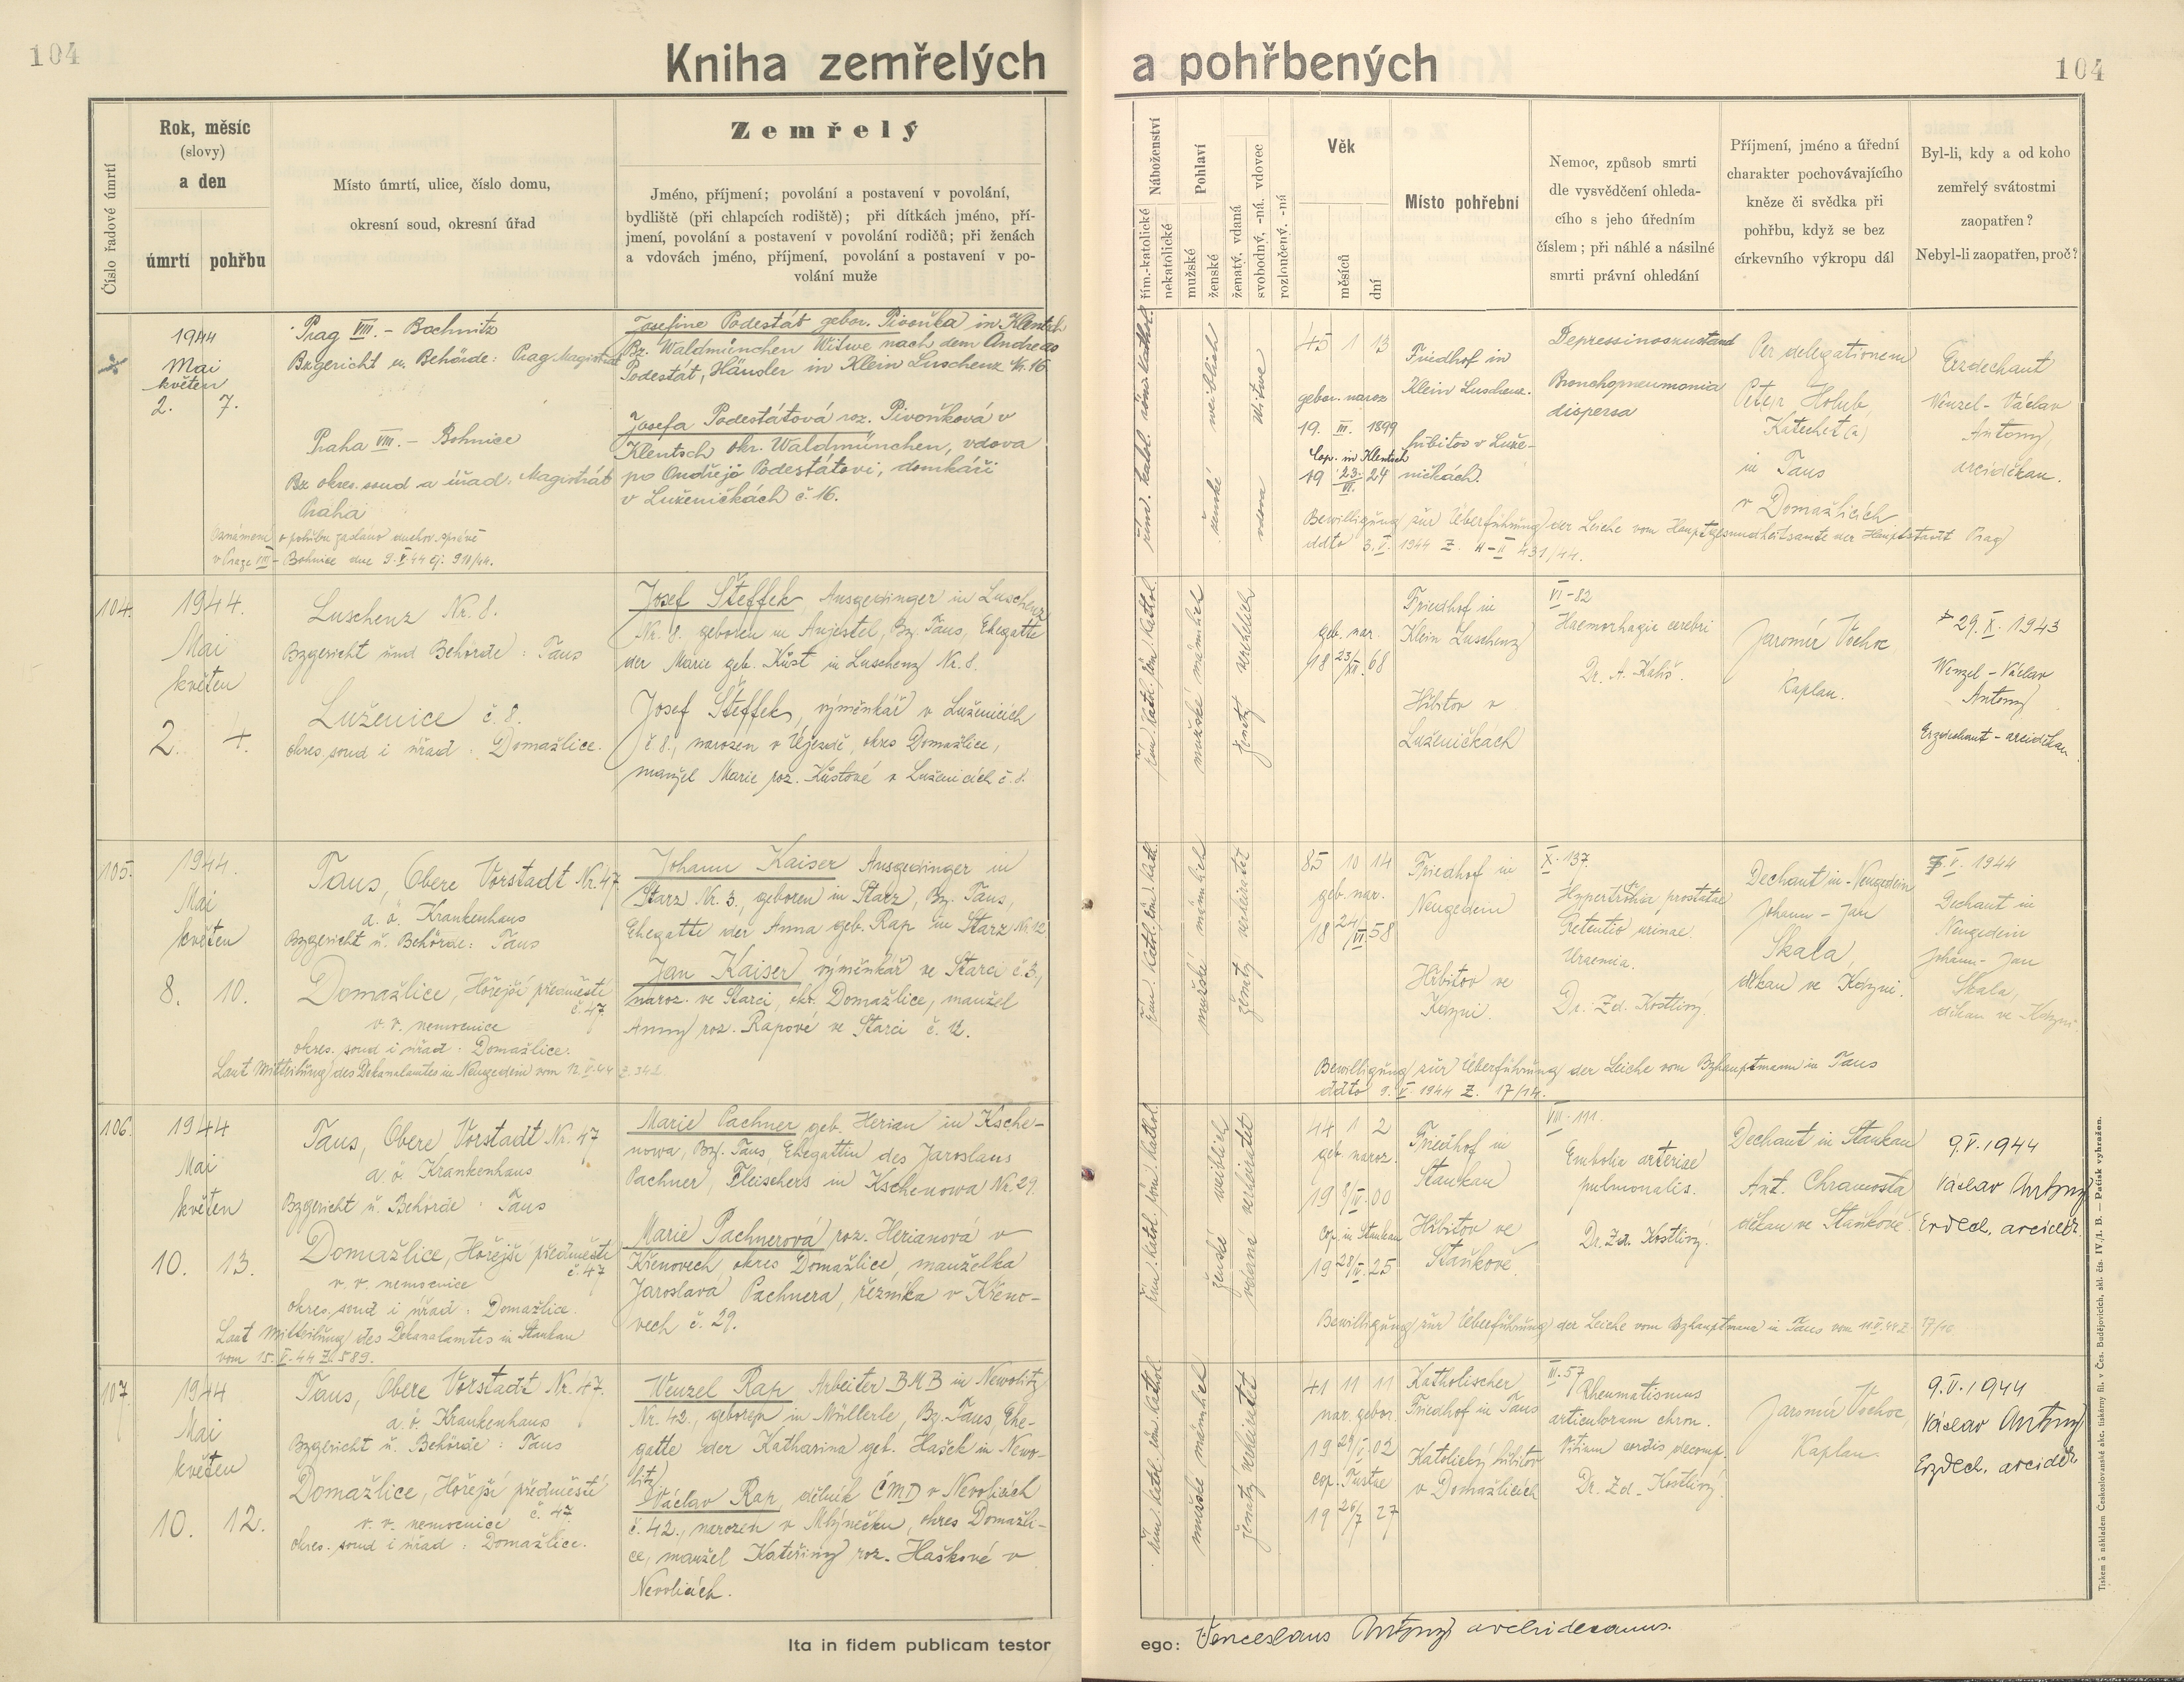 104
Kniha zemřelých a pohřbených
104
Číslo řadové úmrtí
Rok, měsíc
(slovy)
a den
úmrtí
pohřbu
Místo úmrtí, ulice, číslo domu,
okresní soud, okresní úřad
Zemřelý
Jméno, příjmení; povolání a postavení v povolání,
bydliště (při chlapcích rodiště); při dítkách jméno, pří-
jmení, povolání a postavení v povolání rodičů; při ženách
a vdovách jméno, příjmení, povolání a postavení v po-
volání muže
Náboženství
řím.-katolické
nekatolické
Pohlaví
mužské
ženské
ženatý, vdaná
svobodný, -ná. vdovec
rozloučený. -ná
Věk
měsíců
dní
Místo pohřební
Nemoc, způsob smrti
dle vysvědčení ohleda-
cího s jeho úředním
číslem; při náhlé a násilné
smrti právní ohledání
Příjmení, jméno a úřední
charakter pochovávajícího
kněze či svědka při
pohřbu, když se bez
církevního výkropu dál
Byl-li, kdy a od koho
zemřelý svátostmi
zaopatřen?
Nebyl-li zaopatřen, proč?
1944
Mai
květen
2. 7.
Prag VIII. - Bochnitz
Bzgericht u. Behörde: Prag Magistrat
Praha VIII. - Bohnice
Bz okres. soud a úřad: Magistrát
Praha
Oznámení o pohřbu zasláno duchov. správě
v Praze VIII - Bohnice dne 9.V.44 čj. 910/44.
Josefine Podestát gebor. Pivoňka in Klentsch
Bz. Waldmünchen Witwe nach dem Andreas
Podestát, Häusler in Klein Luschenz N. 16.
Josefa Podestátová roz. Pivoňková v
Klentsch okr. Waldmünchen, vdova
po Ondřeji Podestátovi, domkáři
v Luženičkách č. 16.
röm. kathol.
weiblich
ženské
Witwe
vdova
45 1 13
gebor. naroz
19. III. 1899
Cop. in Klentsch
19 23/VI. 24
Friedhof in
Klein Luschenz.
hřbitov v Luže-
ničkách.
Depressionszustand
Bronchopneumonia
dispersa
Per delegationem
Peter Holub,
Katechet(a)
in Taus
v Domažlicích
Erzdechant
Wenzel - Václav
Antony,
arciděkan.
Bewilligung zur Überführung der Leiche vom Hauptgesundheitsamte der Hauptstadt Prag
ddto 3.V. 1944 Z. H-II 431/44.
104.
1944.
Mai
květen
2. 4.
Luschenz Nr. 8.
Bzgericht und Behörde: Taus
Luženice č. 8.
okres. soud i úřad: Domažlice.
Josef Šteffek, Ausgedinger in Luschenz
Nr. 8. geboren in Aujestel, Bz. Taus, Ehegatte
der Marie geb. Kůst in Luschenz Nr. 8.
Josef Šteffek, výměnkář v Luženicích
č 8., narozen v Újezdě, okres Domažlice,
manžel Marie roz. Kůstové v Luženicích č. 8.
řím. katol. röm. kathol.
mužské männlich
ženatý verehelich
geb. nar.
18 23/XII. 68
Friedhof in
Klein Luschenz
Hřbitov v
Luženičkách
VI-82
Haemorhagie cerebri
Dr. A.
Jaromír Vochoc
Kaplan.
29. X. 1943
Wenzel - Václav
Antony
Erzdechant - arciděkan
105.
1944.
Mai
květen
8. 10.
Taus, Obere Vorstadt Nr. 47
a. ö. Krankenhaus
Bzgericht u. Behörde: Taus
Domažlice, Hořejší předměstí
č. 47
v. v. nemocnice
okres. soud i úřad: Domažlice.
Laut Mitteilung des Dekanalamtes in Neugedein vom 12.V.44 Z. 342.
Johann Kaiser Ausgedinger in
Starz Nr. 3., geboren in Starz, Bz. Taus,
Ehegatte der Anna geb. Rap in Starz Nr. 12
Jan Kaiser výměnkář ve Starci č 3,
naroz. ve Starci, okr. Domažlice, manžel
Anny roz. Rapové ve Starci č. 12.
řím. katol. röm. kath.
mužské männlich
ženatý verheiratet
85 10 14
geb. nar.
18 24/VI. 58
Friedhof in
Neugedein
Hřbitov ve
Kdyni.
X. 137
Hypertrofia prostatae
Retentio urinae.
Uraemia.
Dr. Zd. Kostlivý.
Dechant in Neugedein
Johann - Jan
Skala,
děkan ve Kdyni.
7.V. 1944
Dechant in
Neugedein
Johann - Jan
Skala,
děkan ve Kdyni.
Bewilligung zur Überführung der Leiche vom Bzhauptmann in Taus
ddto 9.V. 1944 Z. 17/14.
106.
1944
Mai
květen
10. 13.
Taus, Obere Vorstadt Nr. 47
a. ö. Krankenhaus
Bzgericht u. Behörde: Taus
Domažlice, Hořejší předměstí
č. 47
v. v. nemocnice
okres. soud i úřad: Domažlice.
Laut Mitteilung des Dekanalamtes in Stankau
vom 15.V.44 Z. 589.
Marie Pachner geb. Herian in Ksche-
nowa, Bz. Taus, Ehegattin des Jaroslaus
Pachner, Fleischers in Kschenowa Nr. 29.
Marie Pachnerová roz. Herianová v
Křenovech, okres Domažlice, manželka
Jaroslava Pachnera, řezníka v Křeno-
vech č. 29.
řím. katol. röm. kathol.
ženské weiblich
vdaná verheiratet
44 1 2
geb. naroz.
19 8/IV. 00
Cop. in Stankau
19 28/V. 25
Friedhof in
Stankau
Hřbitov ve
Staňkově.
VIII. 111.
Embolia arteriae
pulmonalis.
Dr. Zd. Kostlivý.
Dechant in Stankau
Ant. Chramosta
děkan ve Staňkově.
9.V. 1944
Václav Antony
Erzdech. arciděk.
Bewilligung zur Überführung der Leiche vom Bzhauptmann in Taus vom 11.V.44 Z. 17/10
107.
1944
Mai
květen
10. 12.
Taus, Obere Vorstadt Nr. 47.
a. ö. Krankenhaus
Bzgericht u. Behörde: Taus
Domažlice, Hořejší předměstí
v. v. nemocnice č. 47
okres. soud i úřad: Domažlice.
Wenzel Rap Arbeiter BMB in Newolitz
Nr. 42., geboren in Müllerle, Bz. Taus, Ehe-
gatte der Katharina geb. Hašek in Newo-
litz
Václav Rap, dělník ČMD v Nevolicích
č. 42., narozen v Mlýnečku, okres Domažli-
ce, manžel Kateřiny roz. Haškové v
Nevolicích.
řím. katol. röm. kathol.
mužské männlich
ženatý verheiratet
41 11 11
nar. gebor.
19 29/V. 02
cop.
19 26/7 27
Katholischer
Friedhof in Taus
Katolický hřbitov
v Domažlicích
III. 57
Rheumatismus
articulorum chron.
Vitium cordis decomp.
Dr. Zd. Kostlivý.
Jaromír Vochoc,
Kaplan.
9.V. 1944
Václav Antony
Erzdech. arciděk
Ita in fidem publicam testor ego: Venceslaus Antony archidecanus.
Tiskem a nákladem Českoslovanské akc. tiskárny fil. v Čes. Budějovicích, skl. čís. IV./1. B. — Patisk vyhražen.